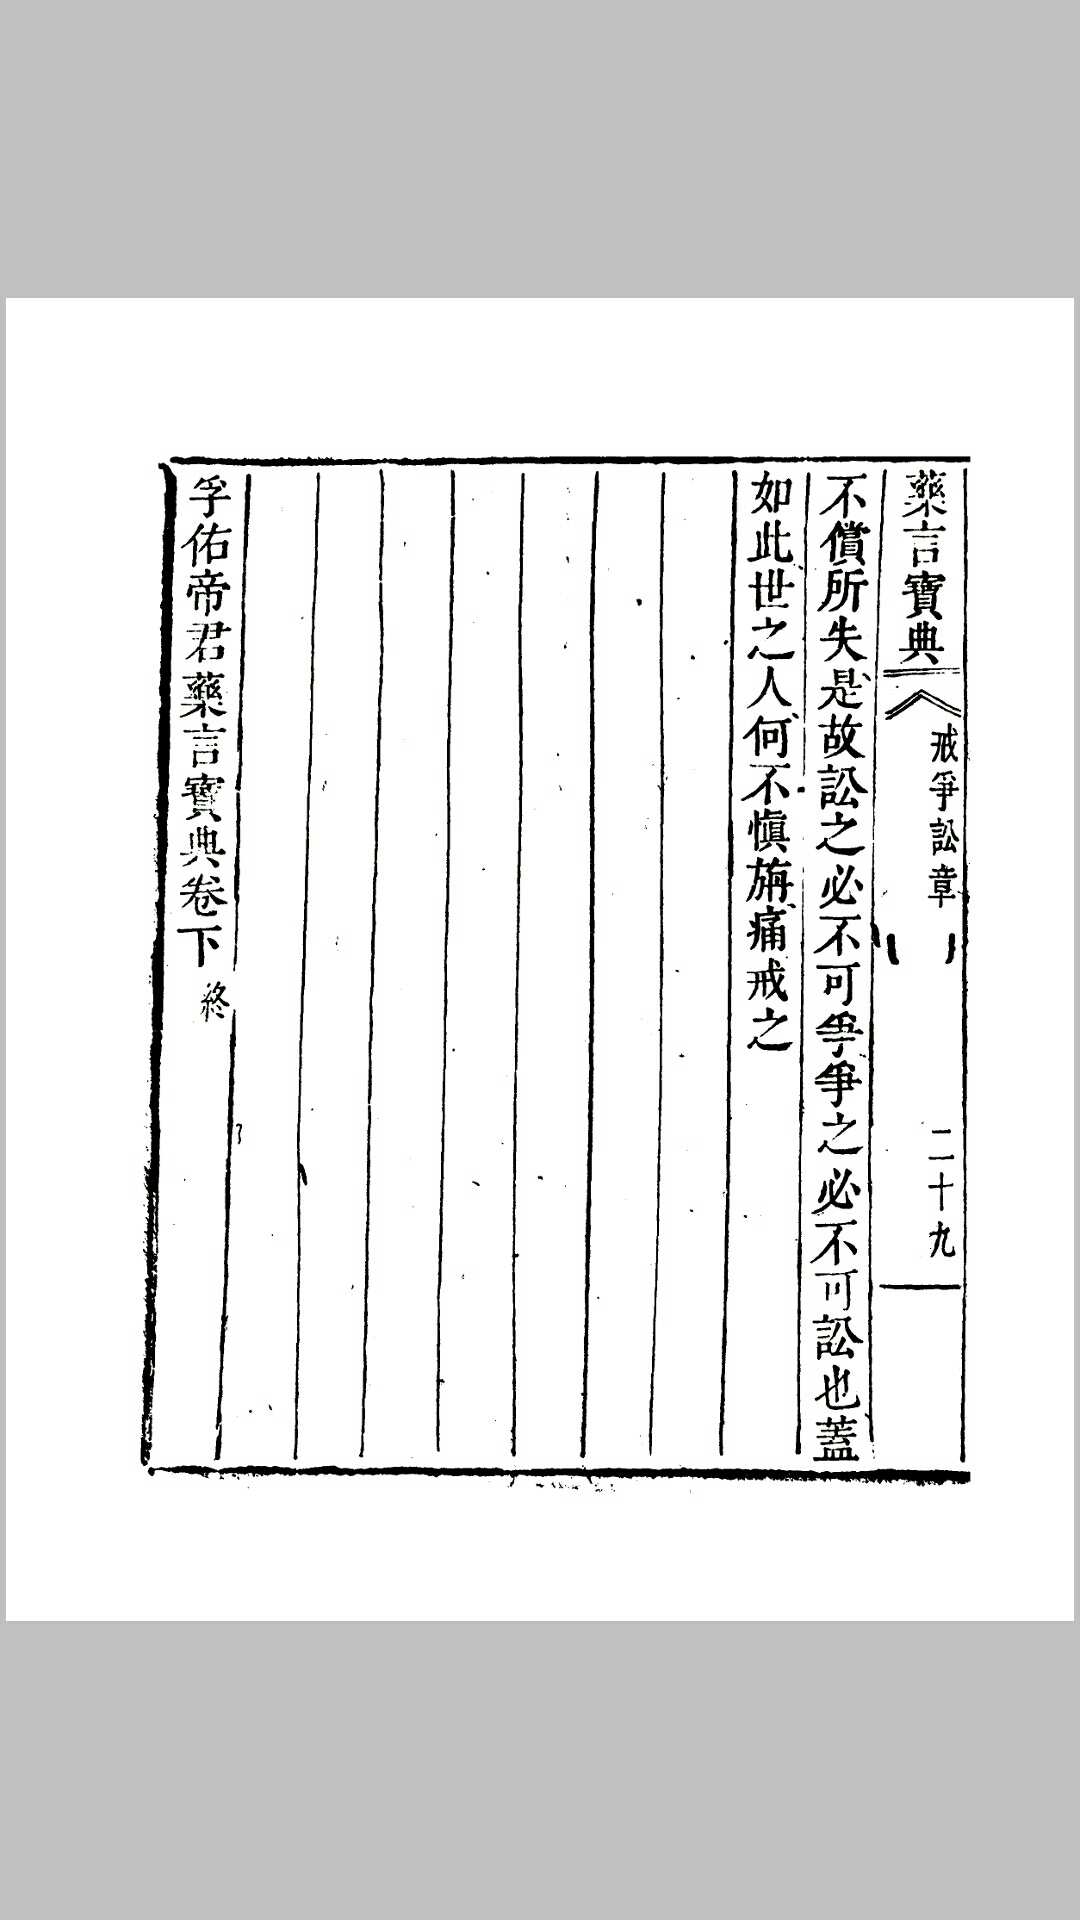 藥言寶典
戒爭訟章
二十九
不償所失是故訟之必不可爭爭之必不可訟也蓋
如此世之人何不慎旃痛戒之
孚佑帝君藥言寶典卷下終